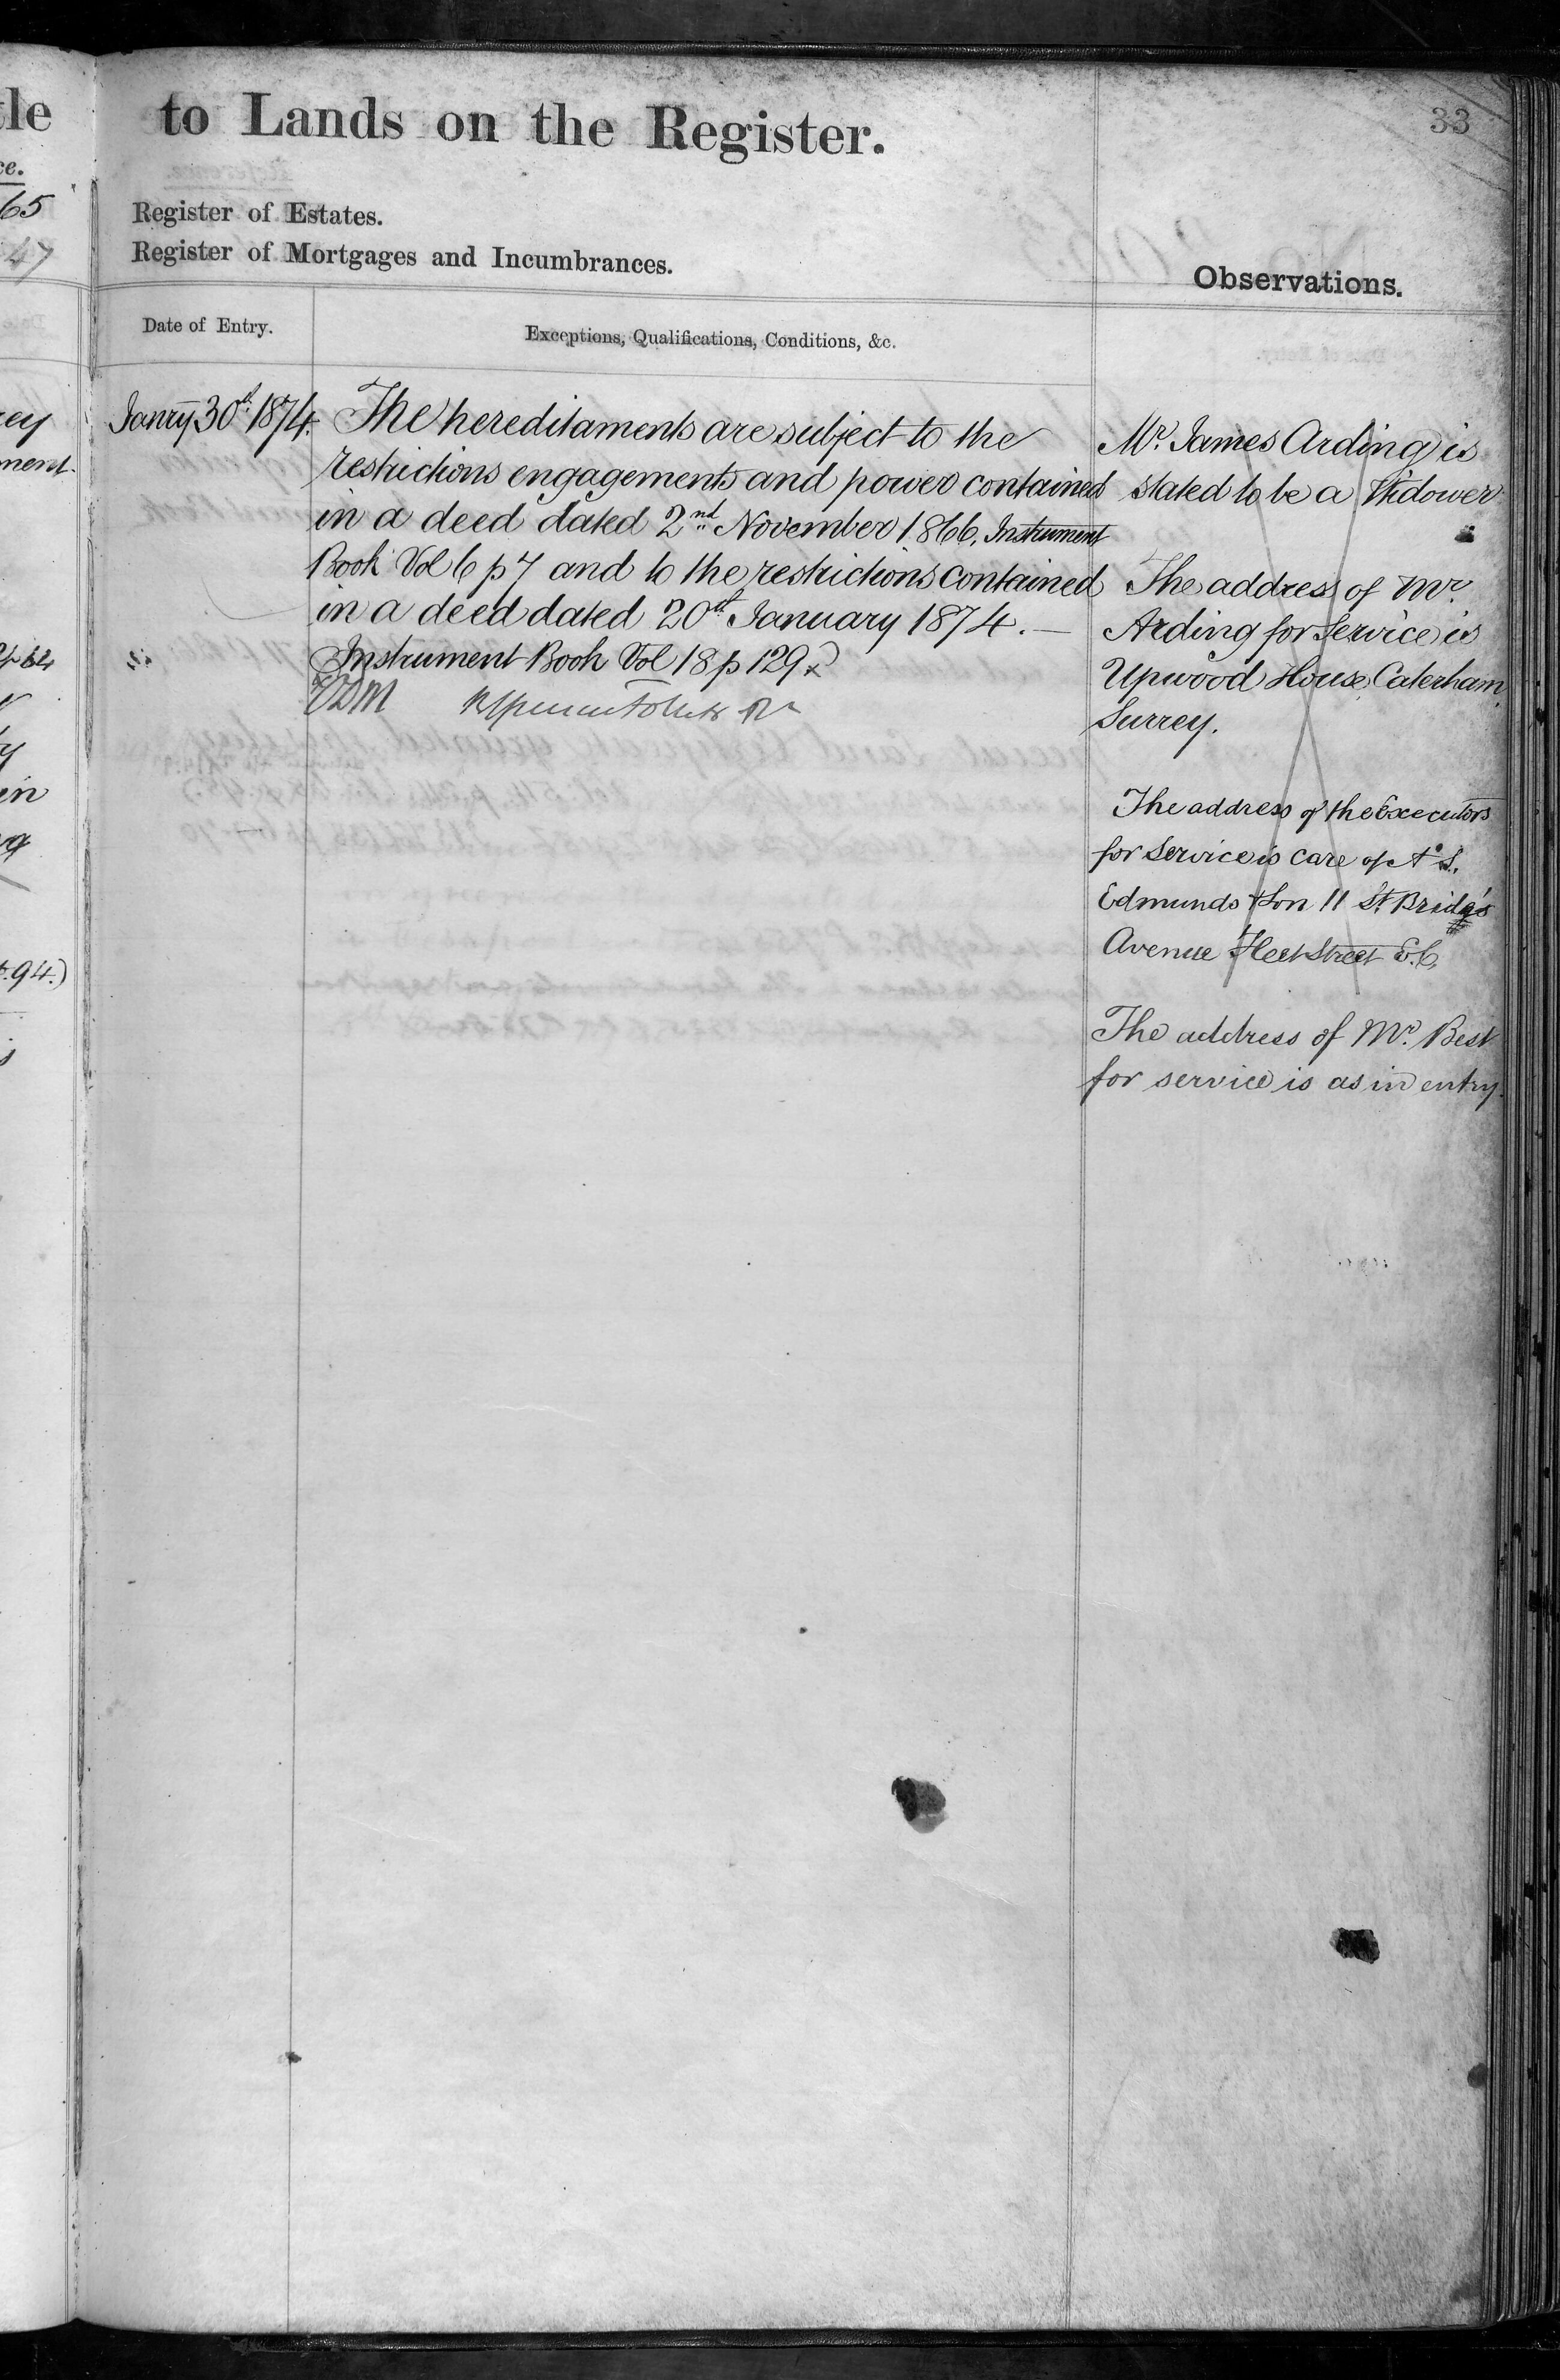 tle
ce.
65
47
ey
ment.
ty
in
.94.)
to Lands on the Register.
33
Register of Estates.
Register of Mortgages and Incumbrances.
Observations.
Date of Entry.
Exceptions, Qualifications, Conditions, &c.
Janry 30th 1874.
The hereditaments are subject to the
restrictions engagements and power contained
in a deed dated 2nd November 1866, Instrument
Book Vol 6 p 7 and to the restrictions contained
in a deed dated 20th January 1874.—
Instrument Book Vol 18 p 129
Mr. James Arding is
stated to be a Widower
The address of Mr.
Arding for Service is
Upwood House, Caterham,
Surrey.
The address of the Executors
for Service is care of A. S.
Edmunds & Son 11 St. Bride's
Avenue Fleet Street E.C.
The address of Mr. Best
for service is as in entry.